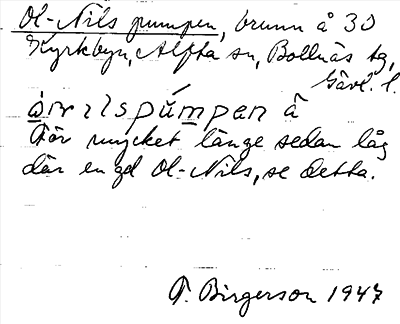 Ol-Nils pumpen, brunn å 30
Kyrkbyn, Alfta sn, Bollnäs tg,
Gävl. l.
pumpen å
För mycket länge sedan låg
där en gd Ol-Nils, se detta.
F. Birgerson 1947